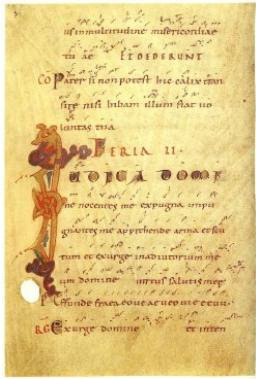 us in multitudine misericordiae
tu ae ET DEDERUNT
CO Pater si non potest hic calix tran
sire nisi bibam illum fiat vo
luntas tua
FERIA II
IUDICA DOMI
ne nocentes me expugna impu
gnantes me apprehende arma et scu
tum et exurge in adiutorium me
um domine virtus salutis meę
Effunde frameam et
RG Exurge domine et inten